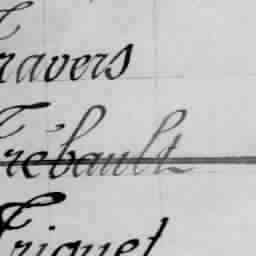 Travers
Trébault
Triquet